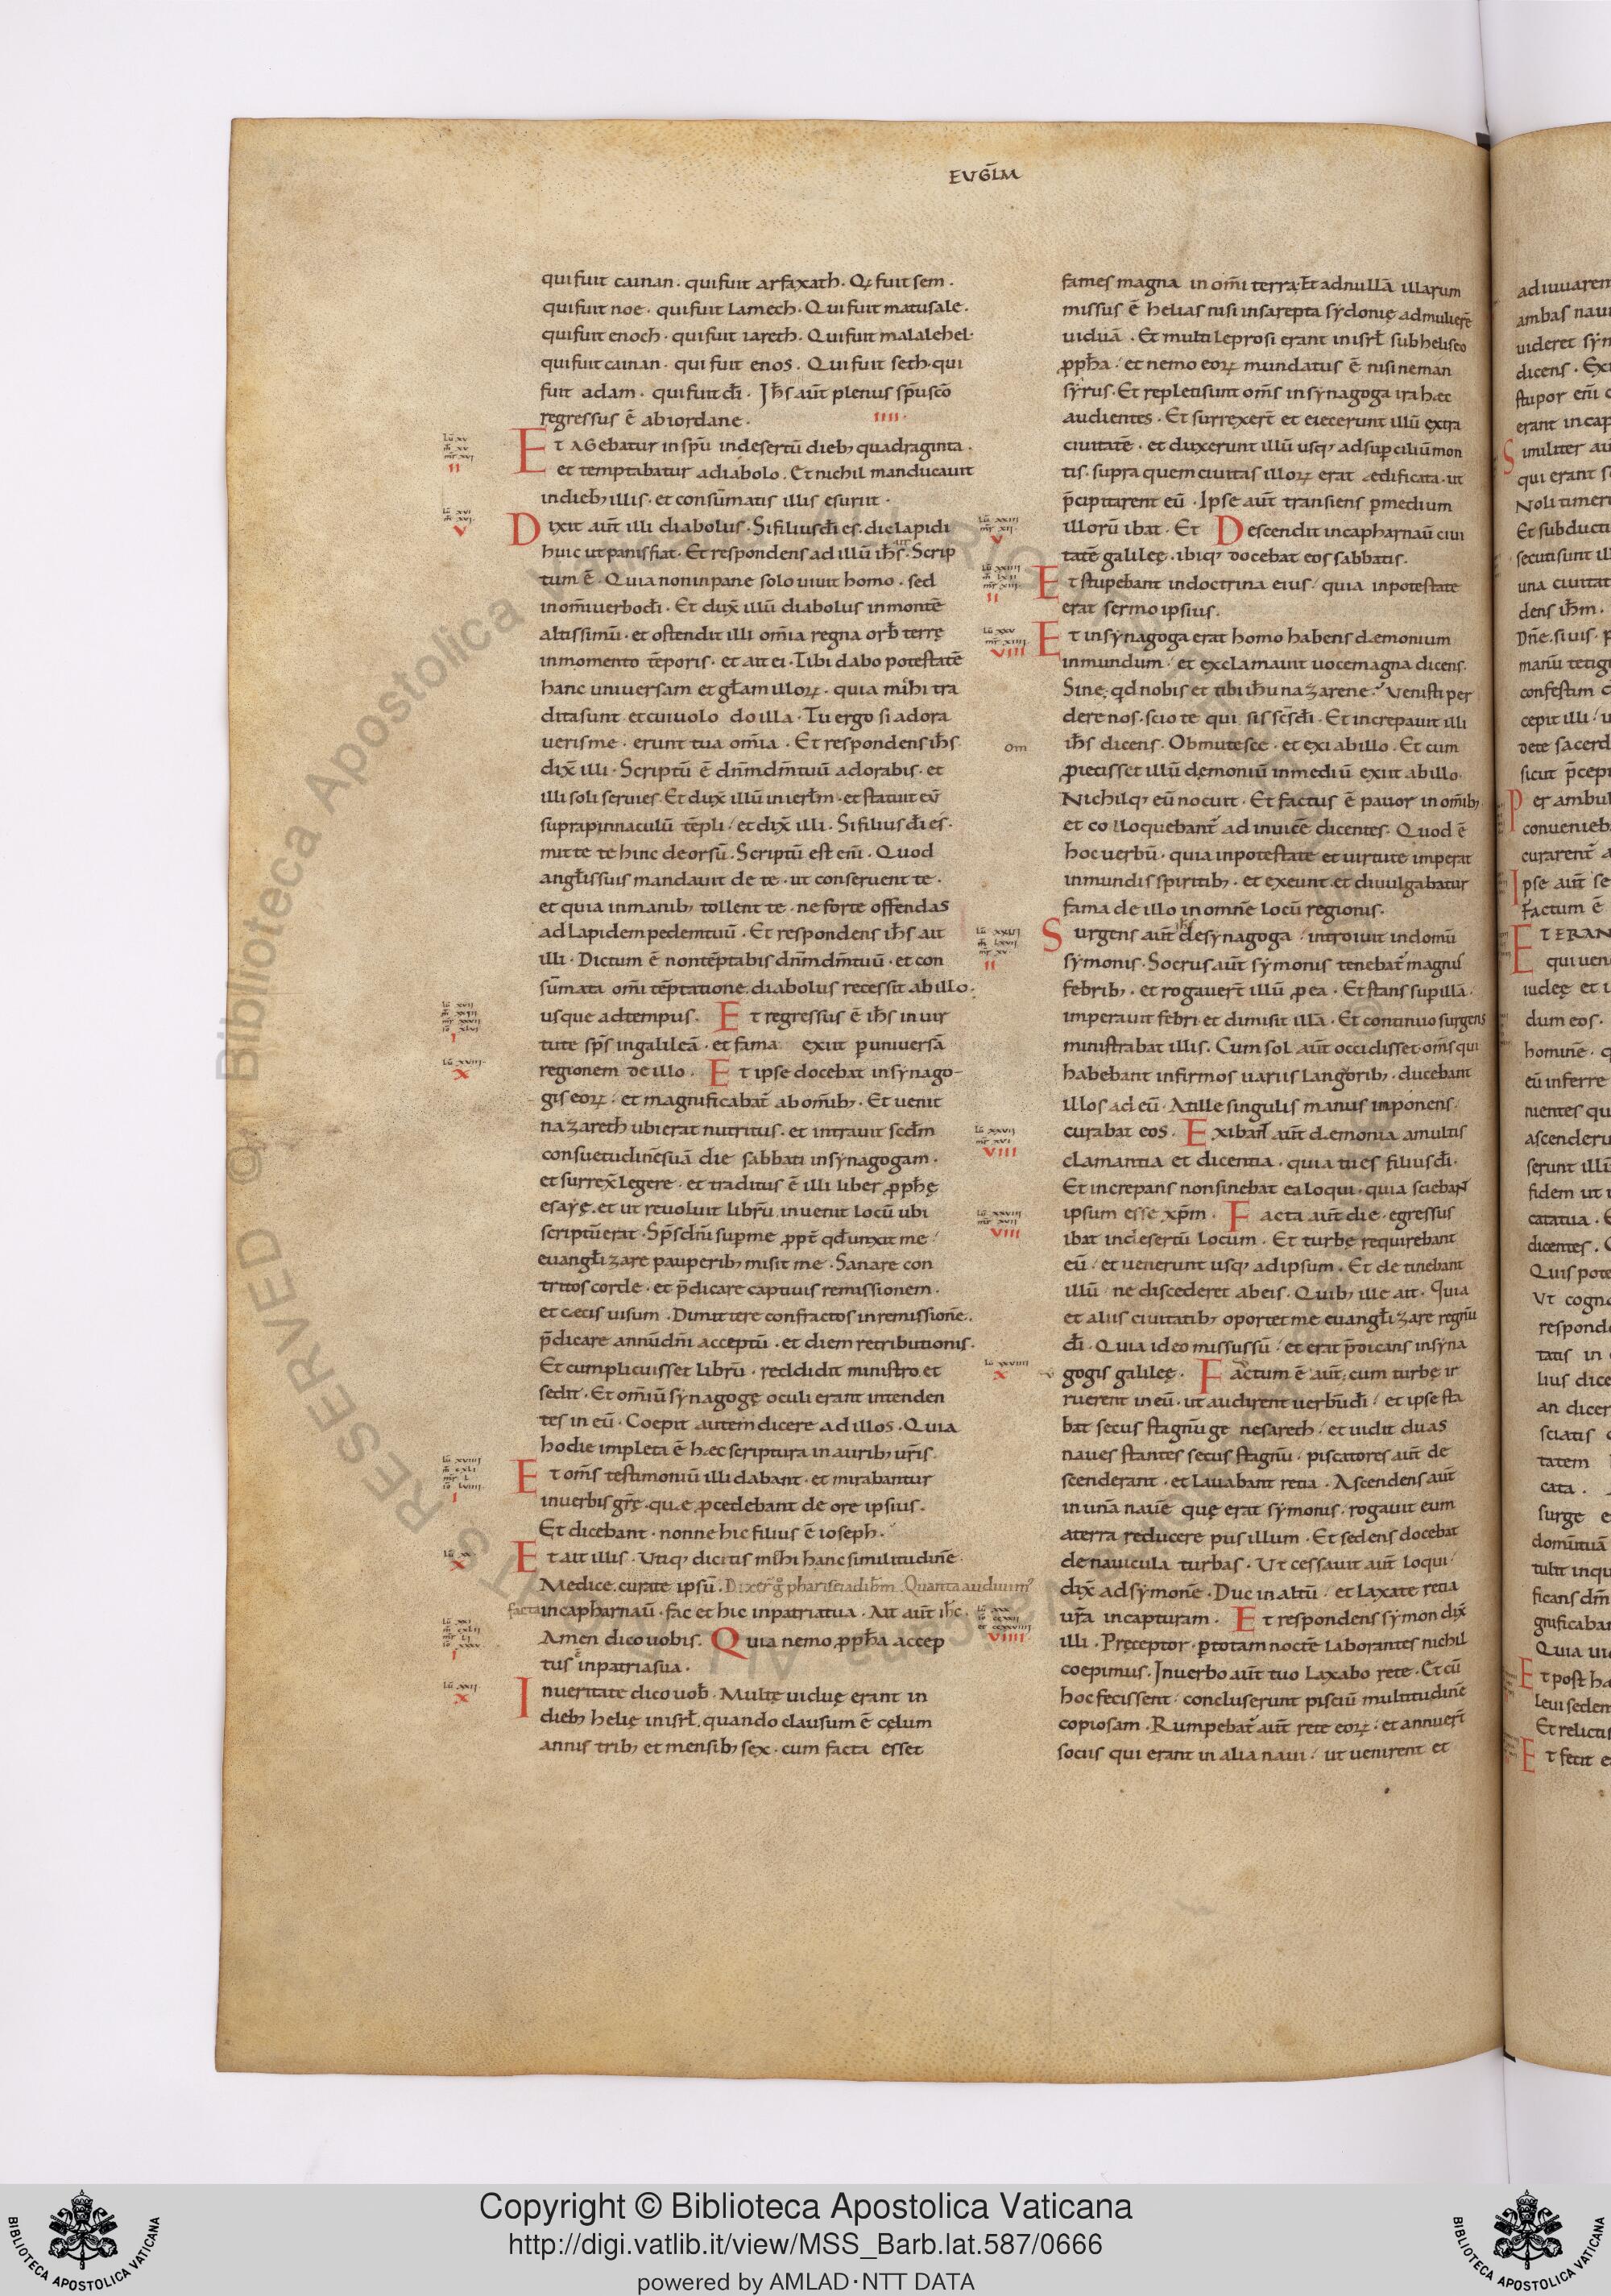 EVGL̄M
qui fuit cainan. qui fuit arfaxath. Qꝫ fuit sem.
qui fuit noe. qui fuit lamech. Qui fuit matusale.
qui fuit enoch. qui fuit iareth. Qui fuit malalehel.
qui fuit cainan. qui fuit enos. Qui fuit seth. qui
fuit adam. qui fuit dī. Ihs̄ aūt plenus sp̄u scō
regressus ē ab iordane. IIII.
Et agebatur in sp̄u in desertū dieb; quadraginta.
et temptabatur a diabolo. Et nichil manducauit
in dieb; illis. et consūmatis illis esuriit.
Dixit aūt illi diabolus. Si filius dī es. dic lapidi
huic ut panis fiat. Et respondens ad illū ihs̄. Scrip
tum ē. Quia non in pane solo uiuit homo. sed
in om̄i uerbo dī. Et dux̄ illū diabolus in montē
altissimū. et ostendit illi om̄ia regna orb̄ terrę
in momento tēporis. et ait ei. Tibi dabo potestatē
hanc uniuersam et gl̄am illoꝝ. quia mihi tra
dita sunt et cui uolo do illa. Tu ergo si adora
ueris me. erunt tua om̄ia. Et respondens ihs̄
dix̄ illi. Scriptū ē dn̄m dm̄ tuū adorabis. et
illi soli seruies. Et dux̄ illū in ierl̄m. et statuit eū
supra pinnaculū tēpli. et dix̄ illi. Si filius dī es.
mitte te hinc deorsū. Scriptū est eni̅. Quod
angl̄is suis mandauit de te. ut conseruent te.
et quia in manib; tollent te. ne forte offendas
ad lapidem pedem tuū. Et respondens ihs̄ ait
illi. Dictum ē non tēptabis dn̄m dm̄ tuū. et con
sūmata om̄i tēptatione. diabolus recessit ab illo.
usque ad tempus. Et regressus ē ihs̄ in uir
tute sp̄s in galileā. et fama exiit p uniuersā
regionem de illo. Et ipse docebat in synago-
gis eoꝝ. et magnificabat̄ ab om̄ib;. Et uenit
nazareth ubi erat nutritus. et intrauit scd̄m
consuetudinē suā die sabbati in synagogam.
et surrex̄ legere. et traditus ē illi liber ꝓph̄ę
esayę. et ut reuoluit librū. inuenit locū ubi
scriptū erat. Sp̄s dn̄i sup me ꝓpt̄ qd̄ unxit me
euangl̄izare pauperib; misit me. Sanare con
tritos corde. et p̄dicare captiuis remissionem.
et cęcis uisum. Dimittere confractos in remissionē.
p̄dicare annū dn̄i acceptū. et diem retributionis.
Et cum plicuisset librū. reddidit ministro. et
sedit. Et om̄iū synagogę oculi erant intenden
tes in eū. Coepit autem dicere ad illos. Quia
hodie impleta ē hęc scriptura in aurib; ur̄is.
Et om̄s testimoniū illi dabant. et mirabantur
in uerbis gr̄ę. quę ꝓcedebant de ore ipsius.
Et dicebant. nonne hic filius ē ioseph.
Et ait illis. Utiq; dicitis mihi hanc similitudinē.
Medice. cura te ipsū. Quanta audiuim'
facta in capharnaū. fac et hic in patria tua. Ait aūt ihc̄.
Amen dico uobis. Quia nemo ꝓph̄a accep
tus ē in patria sua.
In ueritate dico uob̄. Multę uiduę erant in
dieb; helię in isrl̄. quando clausum ē cęlum
annis trib; et mensib; sex. cum facta esset
fames magna in om̄i terra. Et ad nullā illarum
missus ē helias nisi in sarepta sydonię ad mulierē
uiduā. Et multi leprosi erant in isrl̄ sub heliseo
ꝓph̄a. et nemo eoꝝ mundatus ē nisi neman
syrus. Et repleti sunt om̄s in synagoga ira hęc
audientes. Et surrexer̄t et eiecerunt illū extra
ciuitatē. et duxerunt illū usq; ad supciliū mon
tis. supra quem ciuitas illoꝝ erat ędificata. ut
p̄cipitarent eū. Ipse aūt transiens p medium
illorū ibat. Et Descendit in capharnaū ciui
tatē galileę. ibiq; docebat eos sabbatis.
Et stupebant in doctrina eius. quia in potestate
erat sermo ipsius.
Et in synagoga erat homo habens dęmonium
inmundum. et exclamauit uoce magna dicens.
Sine. qd nobis et tibi ihū nazarene? Uenisti per
dere nos. scio te qui sis scs̄ dī. Et increpauit illi
ihs̄ dicens. Obmutesce. et exi ab illo. Et cum
ꝓiecisset illū dęmoniū in mediū exiit ab illo.
Nichilq; eū nocuit. Et factus ē pauor in om̄ib;
et colloquebant̄ ad inuicē dicentes. Quod ē
hoc uerbū. quia in potestate et uirtute imperat
inmundis spiritib;. et exeunt. et diuulgabatur
fama de illo in omnē locū regionis.
Surgens aūt de synagoga. introiuit in domū
symonis. Socrus aūt symonis tenebat̄ magnis
febrib;. et rogauer̄t illū ꝓ ea. Et stans sup illā.
imperauit febri et dimisit illā. Et continuo surgens
ministrabat illis. Cum sol aūt occidisset. om̄s qui
habebant infirmos uariis langorib;. ducebant
illos ad eū. At ille singulis manus inponens
curabat eos. Exibant aūt dęmonia a multis
clamantia et dicentia. quia tu es filius dī.
Et increpans non sinebat ea loqui. quia sciebant
ipsum esse xp̄m. Facta aūt die. egressus
ibat in desertū locum. Et turbę requirebant
eū. et uenerunt usq; ad ipsum. Et detinebant
illū ne discederet ab eis. Quib; ille ait. Quia
et aliis ciuitatib; oportet me euangl̄izare regnū
dī. Quia ideo missus sū. et erat p̄dicans in syna
gogis galileę. Factum ē aūt. cum turbę ir
ruerent in eū. ut audirent uerbū dī. et ipse sta
bat secus stagnū genesareth. et uidit duas
naues stantes secus stagnū. piscatores aūt de
scenderant. et lauabant retia. Ascendens aūt
in unā nauē quę erat symonis. rogauit eum
a terra reducere pusillum. Et sedens docebat
de nauicula turbas. Ut cessauit aūt loqui
dix̄ ad symonē. Duc in altū. et laxate retia
ur̄a in capturam. Et respondens symon dix̄
illi. Pręceptor. p totam noctē laborantes nichil
coepimus. In uerbo aūt tuo laxabo rete. Et cū
hoc fecissent. concluserunt pisciū multitudinē
copiosam. Rumpebat̄ aūt rete eoꝝ. et annuer̄t
sociis qui erant in alia naui. ut uenirent et
Copyright © Biblioteca Apostolica Vaticana
http://digi.vatlib.it/view/MSS_Barb.lat.587/0666
powered by AMLAD·NTT DATA
BIBLIOTECA APOSTOLICA VATICANA
BIBLIOTECA APOSTOLICA VATICANA